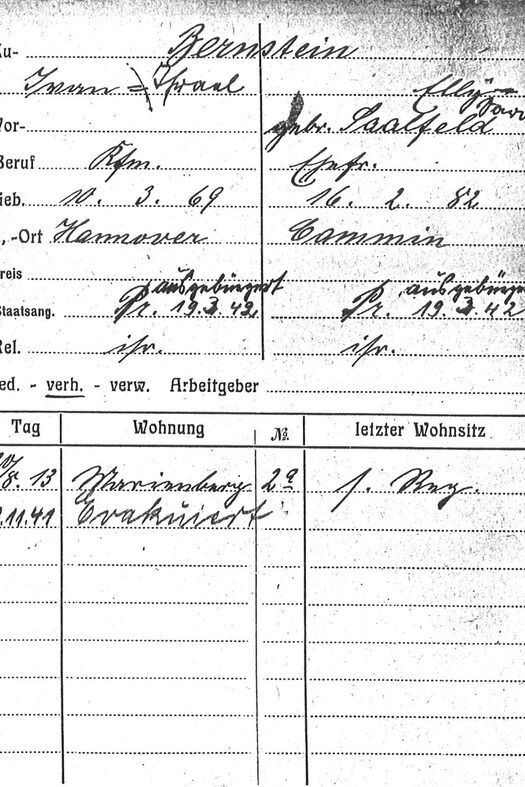 Zu- Bernstein
Ivan = Israel Elly
Vor- gebr. Saalfeld
Beruf Kfm. Ehefr.
Geb. 10. 3. 69 16. 2. 82
-Ort Hannover Cammin
Kreis ausgebürgert ausgebürge
Staatsang. Pr. 19.3.42. Pr. 19.3.42
Rel. isr. isr.
led. - verh. - verw. Arbeitgeber
Tag Wohnung № letzter Wohnsitz
8. 13 Marienberg 2a s. Reg.
.11.41 Evakuiert